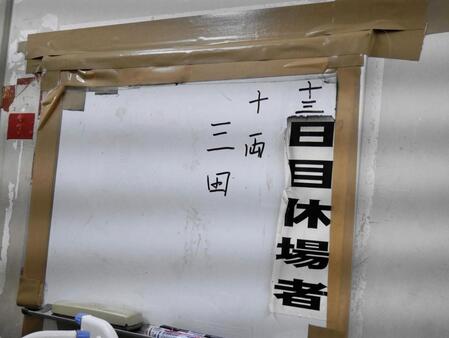 十三日目休場者
十両
三田